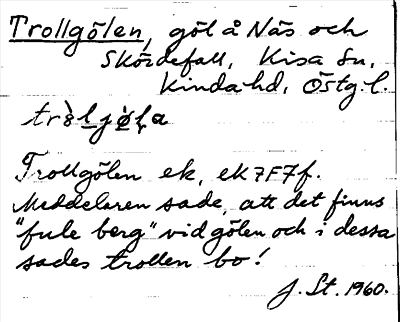 Trollgölen, göl å Näs och
Skördefall, Kisa sn,
Kinda hd, Östg.l.
trò̤l̲jø̤̀ḷa
Trollgölen ek, ek 7F7f.
Meddelaren sade, att det finns
"fule berg" vid gölen och i dessa
sades trollen bo!
J. St. 1960.